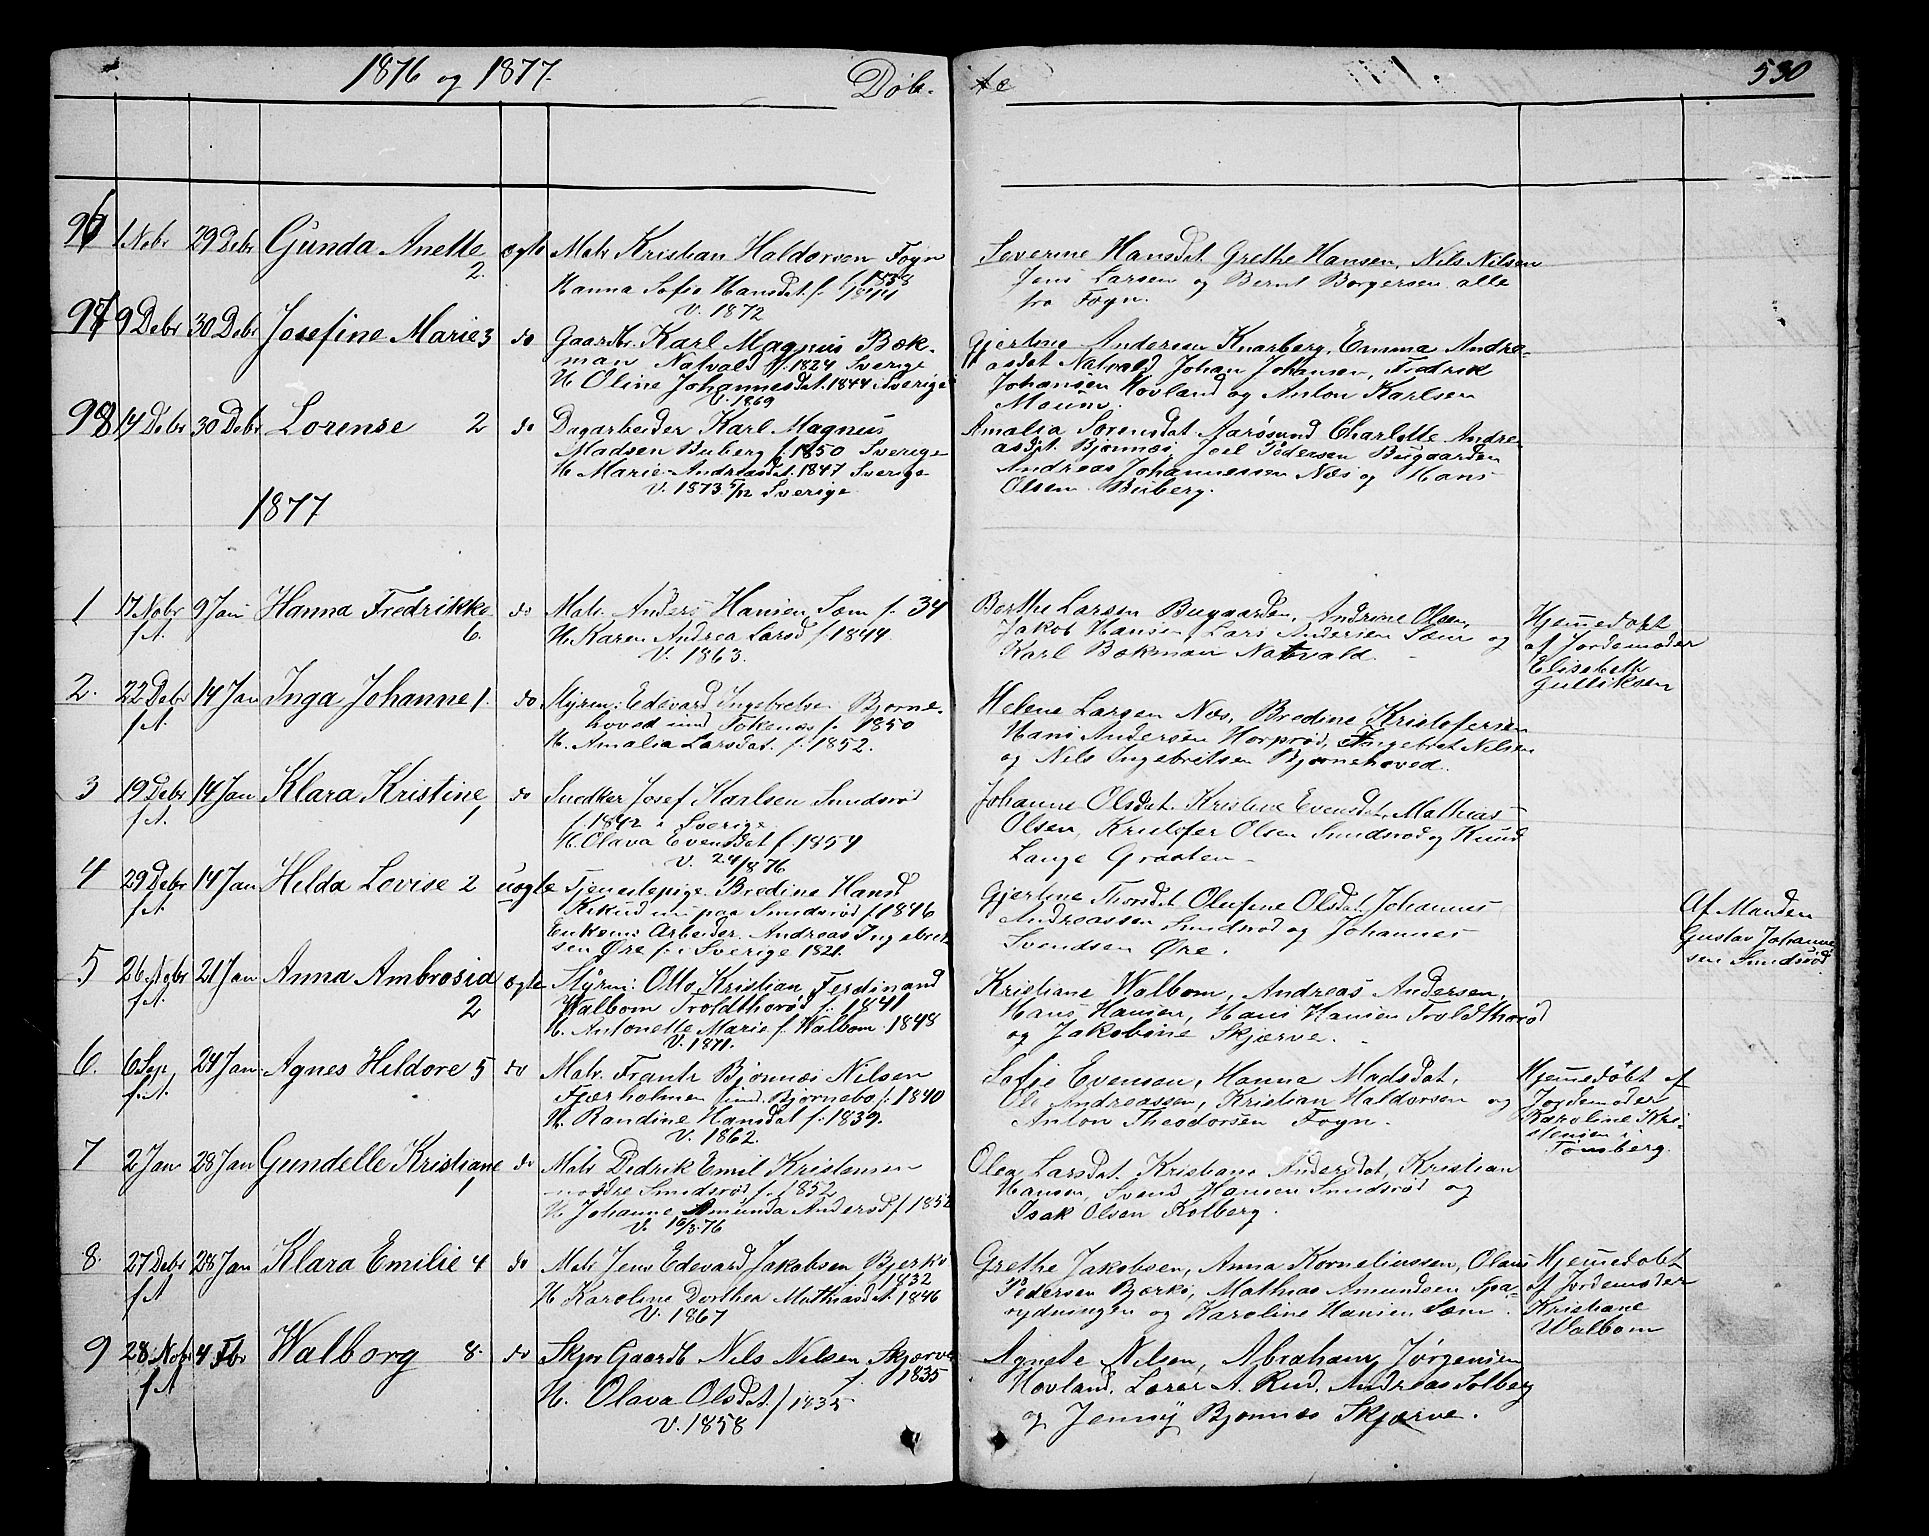 1876 og 1877. Døb- te 530
96 1 Nobr 29 Debr Gunda Anette 2. ægte Matr Kristian Haldorsen Fogn f. 1838
Hanna Sofie Hansdat. f. 1841
V. 1872
Severine Hansdat Grethe Hansen, Nils Nilsen
Jens Larsen og Bernt Borgersen alle
fra Fogn.
97 9 Debr 30 Debr Josefine Marie 3 do Gaardbr. Karl Magnus Bæk-
man Natvald f. 1824 Sverige
H. Oline Johannesdat. 1844 i Sverige
V. 1869
Gjertine Andersen Knarberg, Emma Andre-
asdat Natvald Johan Johansen, Fredrik
Johansen Hovland og Anton Karlsen
98 14 Debr 30 Debr Lorense 2 do Dagarbeider Karl Magnus
Madsen Buberg f. 1850 Sverige
H. Marie Andreasdat. 1847 Sverige
V. 1873 5/12 Sverige
Amalia Sørensdat Charlotte Andre-
asdat. Bjønnes, Joel Pedersen Bugaarden
Andreas Johannessen Næs og Hans
Olsen Buberg.
1877
1 17 Nobr f.A. 9 Jan Hanna Fredrikke 6. do Matr. Anders Hansen Sæm f. 34
H. Karen Andrea Larsd f. 1844.
V. 1863.
Berthe Larsen Bugaarden, Andrine Olsen,
Jakob Hansen, Lars Andersen Sæm og
Karl Bækman Natvald.
Hjemedøbt
af Jordemoder
Elisabeth
Gulliksen
2. 22 Debr f.A 14 Jan Inga Johanne 1. do Styrm: Edevard Ingebretsen Bjørne-
hoved f. 1850
H. Amalia Larsdat. f. 1852.
Helene Larsen Næs, Bredine Kristofersen
Hans Andersen Horprød, Ingebret Nilsen
og Nils Ingebretsen Bjørnehoved.
3 19 Debr f.A. 14 Jan Klara Kristine 1 do Snedker Josef Karlsen Smidsrød
f. 1842 i Sverige
H. Olava Evensdat f. 1854
V. 24/8 76
Johanne Olsdat. Kristine Evensdat, Mathias
Olsen, Kristofer Olsen Smidsrød og Knud
Lange Graaten
4 29 Debr f.A. 14 Jan Hilda Lovise 2 uægte Tjenestepige Bredine Hansd
paa Smidsrød f. 1846
Enkem: Arbeider Andreas Ingebret-
sen Øre f. i Sverige 1821.
Gjertine Thorsdat Olufine Olsdat, Johannes
Andreassen Smidsrød og Johannes
Svendsen Øre.
Af Manden
Gustav Johanne-
sen Smidsrød
5 26 Nobr f.A. 21 Jan Anna Ambrosia 2 ægte Styrm: Otto Kristian Ferdinand
Walbom Troldthorød f. 1841
H. Antonette Marie f. Walbom. 1848
V. 1871.
Kristiane Walbom, Andreas Andersen,
Hans Hansen, Hans Hansen Troldthorød
og Jakobine Skjærve.
6. 6 Sep f.A. 24 Jan. Agnes Hildore 5 do Matr. Frantz Bjønnes Nilsen
Fjærholmen f. 1840
H. Randine Hansdat f. 1839.
V. 1862.
Sofie Evensen, Hanna Madsdat.
Ole Andreassen, Kristian Haldorsen og
Anton Theodorsen Fogn.
Hjemedøbt af
Jordemoder
Karoline Kri-
stensen i
Tønsberg.
7 2 Jan 28 Jan Gundelle Kristiane 1 do Matr Didrik Emil Kristensen
nordre Smidsrød, f. 1852
H Johanne Amunda Andersd f. 1852
V. 10/3 76
Olea Larsdat. Kristiane Andersdat, Kristian
Hansen, Svend Hansen Smidsrød og
Isak Olsen Kolberg.
8. 27 Debr f.A 28 Jan Klara Emilie 4 do Matr Jens Edevard Jakobsen Bjerkø
f. 1832
H Karoline Dorthea Mathiasdat. 1846
V. 1867
Grethe Jakobsen, Anna Korneliussen, Olaus
Pedersen Bærkø, Mathias Amundsen Spa-
rydningen og Karoline Hansen Sæm.
Hjemedøbt
af Jordemoder
Kristiane
Walbom
9 28 Nobr f.A 4 Fbr Walborg 8. do Skpr Gaardb Nils Nilsen Skjærve
f. 1835
H. Olava Olsdat. f 1835
V. 1858
Agnete Nilsen, Abraham Jørgensen
Hovland, Lærer A. Rud, Andreas Solberg
og Jenny Bjønnes Skjærve.